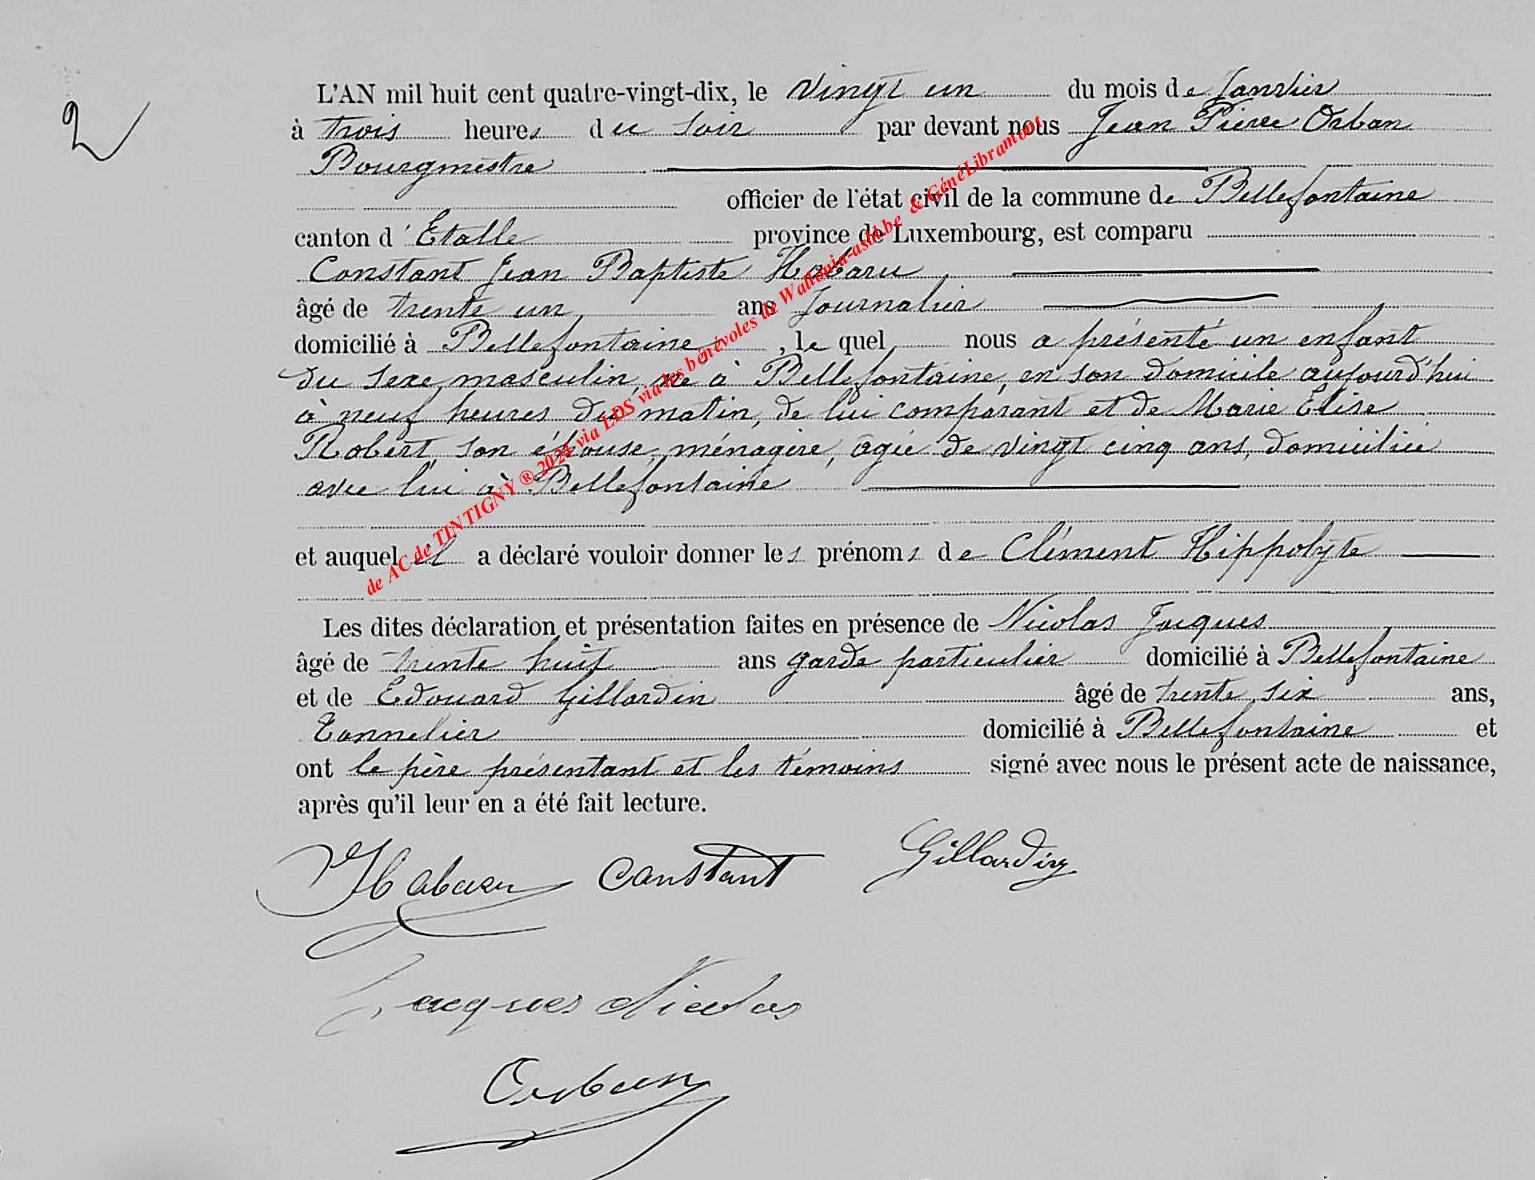 2
L'AN mil huit cent quatre-vingt-dix, le vingt un du mois de Janvier
à trois heures du soir par devant nous Jean Pierre Orban
Bourgmestre
officier de l'état civil de la commune de Bellefontaine
canton d'Etalle province de Luxembourg, est comparu
Constant Jean Baptiste Habaru
âgé de trente un ans Journalier
domicilié à Bellefontaine, le quel nous a présenté un enfant
du sexe masculin, né à Bellefontaine, en son domicile aujourd'hui
à neuf heures du matin, de lui comparant et de Marie Elise
Robert, son épouse, ménagère, agée de vingt cinq ans, domiciliée
avec lui à Bellefontaine
et auquel il a déclaré vouloir donner les prénoms de Clément Hippolyte
Les dites déclaration et présentation faites en présence de Nicolas Jacques
âgé de trente huit ans garde particulier domicilié à Bellefontaine
et de Edouard Gillardin âgé de trente six ans,
Tonnelier domicilié à Bellefontaine et
ont le père présentant et les témoins signé avec nous le présent acte de naissance,
après qu'il leur en a été fait lecture.
Habaru Constant Gillardin
Jacques Nicolas
Orban
de AC de TINTIGNY ® 2024 via LDS via les bénévoles de Wallonia-asbl.be & GénéLibramont